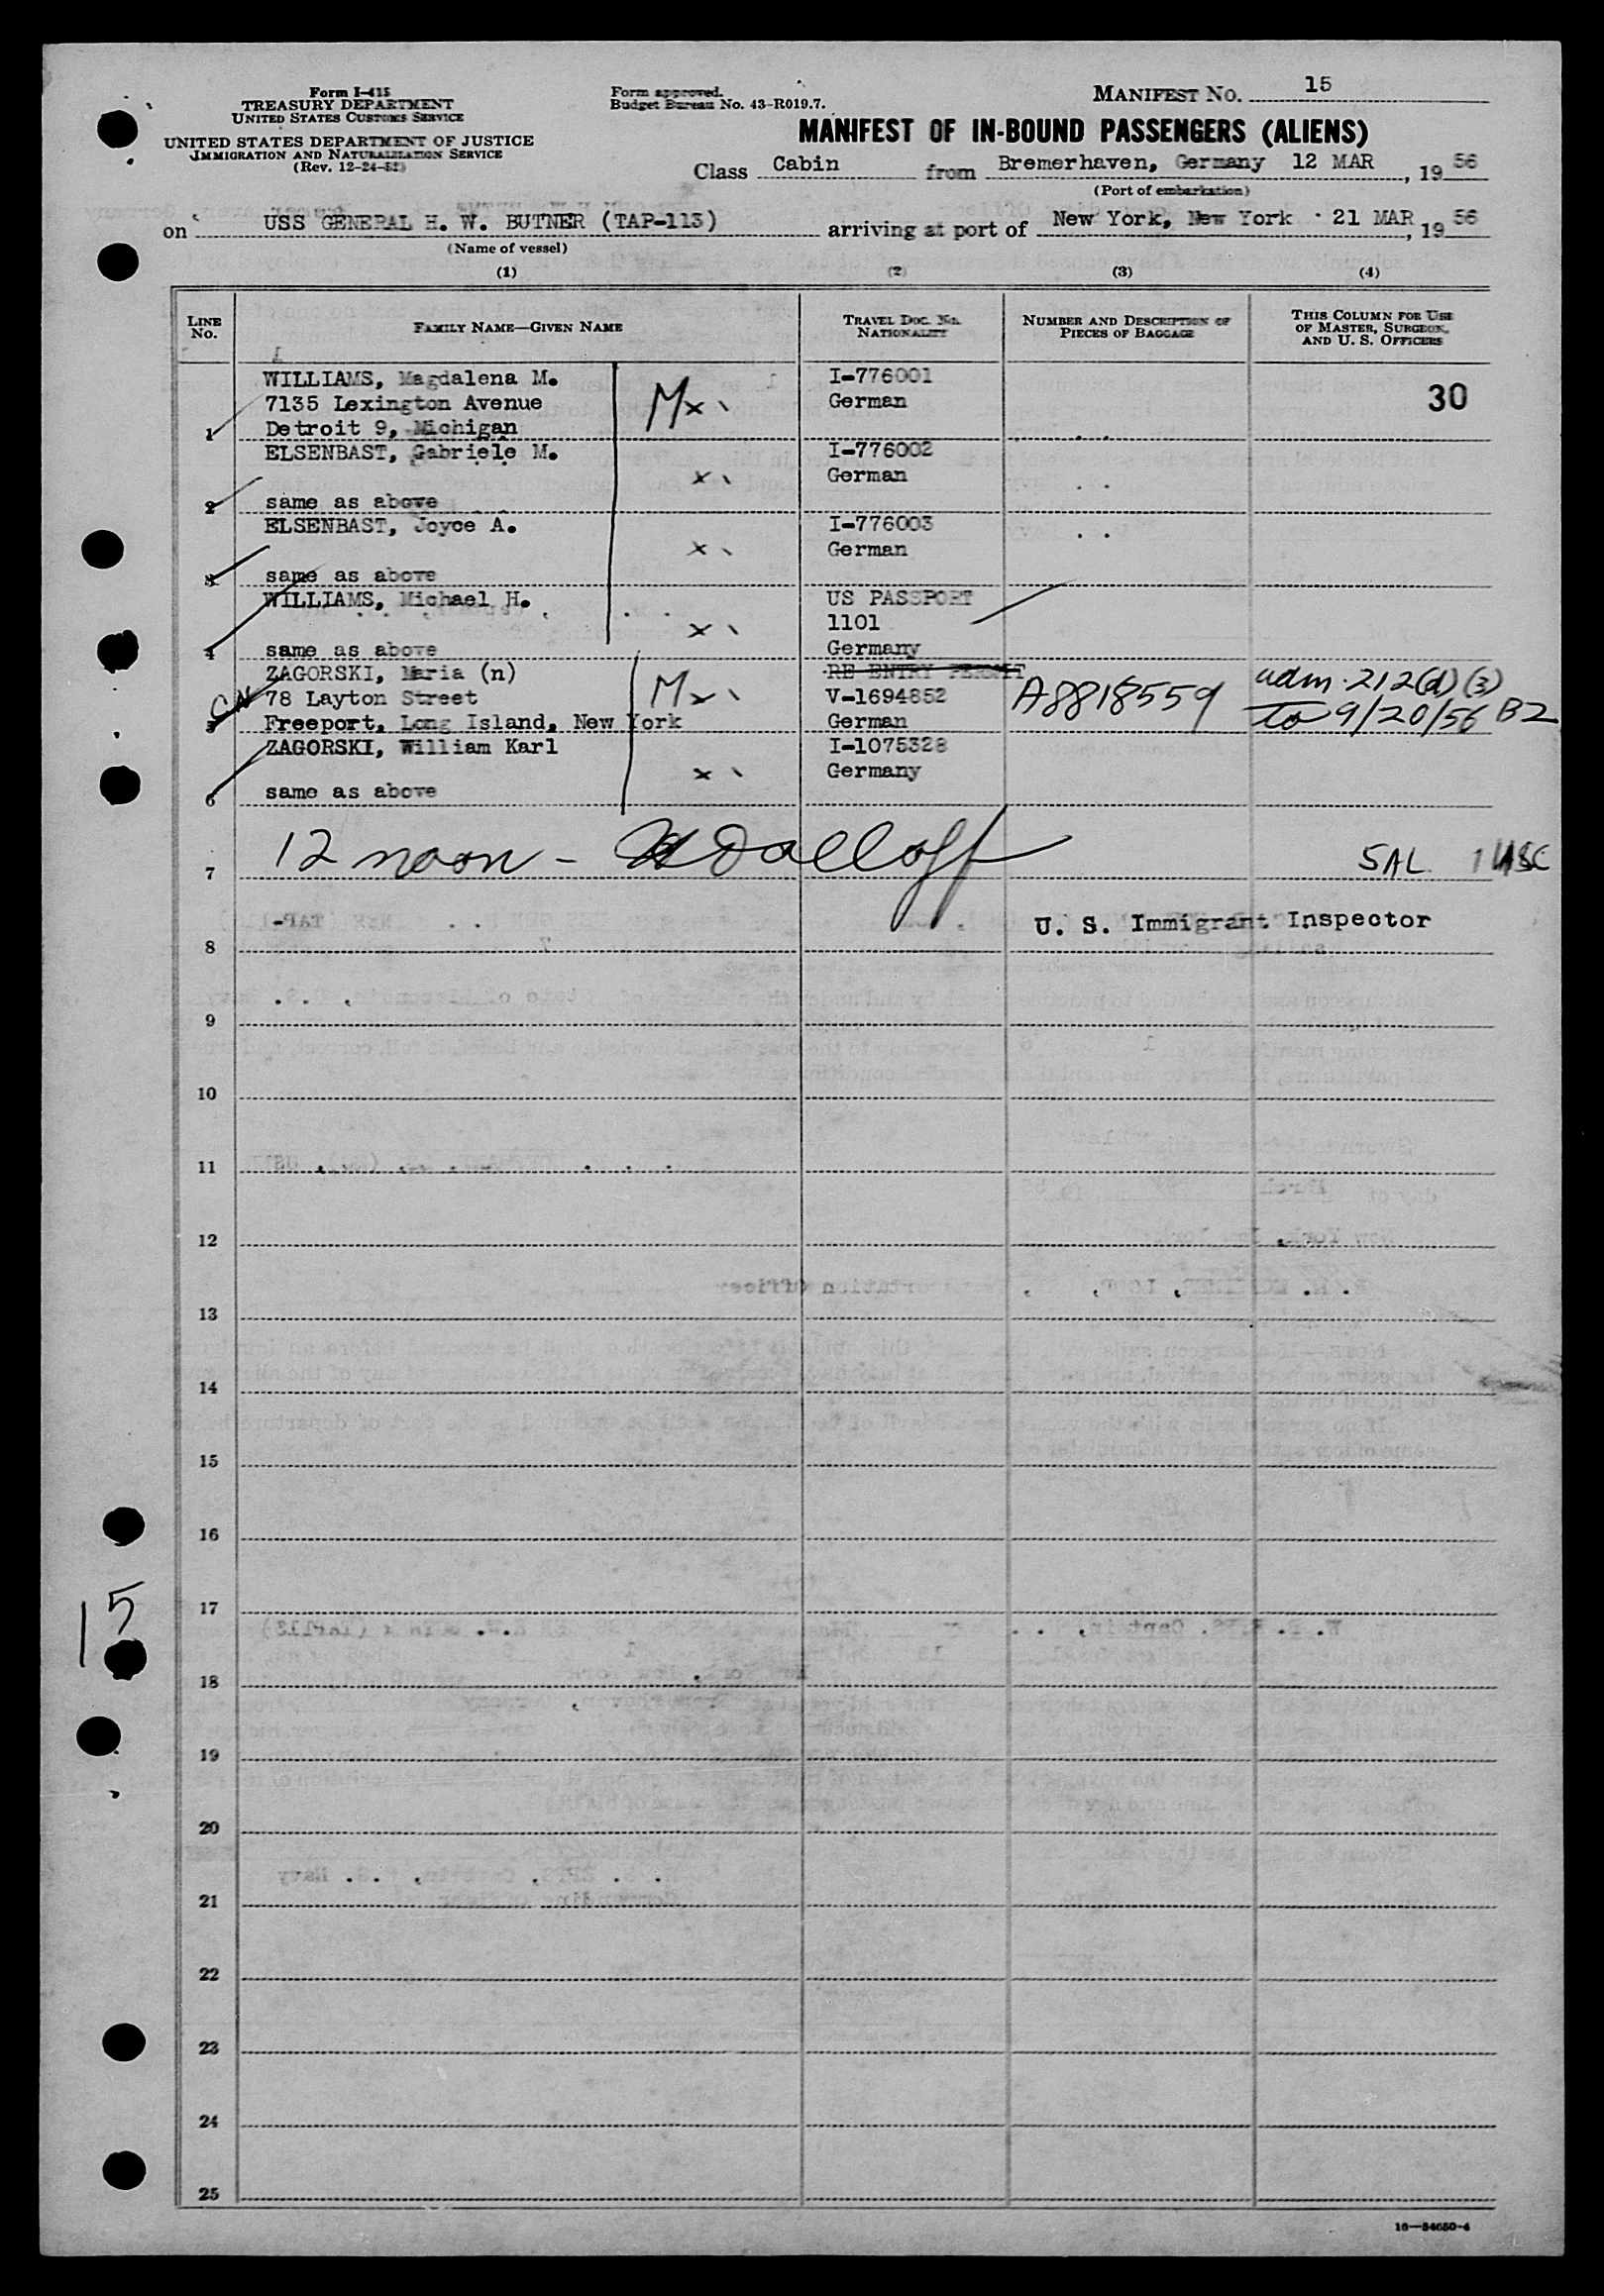 Form I-415
TREASURY DEPARTMENT
UNITED STATES CUSTOMS SERVICE
UNITED STATES DEPARTMENT OF JUSTICE
IMMIGRATION AND NATURALIZATION SERVICE
(Rev. 12-24-52)
Form approved.
Budget Bureau No. 43-R019.7.
MANIFEST NO. 15
MANIFEST OF IN-BOUND PASSENGERS (ALIENS)
Class Cabin from Bremerhaven, Germany 12 MAR, 1956
(Port of embarkation)
on USS GENERAL H. W. BUTNER (TAP-113) arriving at port of New York, New York 21 MAR, 1956
(Name of vessel)
(1) (2) (3) (4)
LINE NO. FAMILY NAME—GIVEN NAME TRAVEL DOC. NO. NATIONALITY NUMBER AND DESCRIPTION OF PIECES OF BAGGAGE THIS COLUMN FOR USE OF MASTER, SURGEON, AND U. S. OFFICERS
WILLIAMS, Magdalena M. I-776001 30
7135 Lexington Avenue Mx German
1 Detroit 9, Michigan
ELSENBAST, Gabriele M. I-776002
x German
2 same as above
ELSENBAST, Joyce A. I-776003
x German
3 same as above
WILLIAMS, Michael H. US PASSPORT
x 1101
4 same as above Germany
ZAGORSKI, Maria (n) RE ENTRY PERMIT adm. 212(d)(3)
CN 78 Layton Street Mx V-1694852 A8818559
5 Freeport, Long Island, New York German to 9/20/56 B2
ZAGORSKI, William Karl I-1075328
x Germany
6 same as above
12 noon -
7 5AL 1 USC
U. S. Immigrant Inspector
8
9
10
11
12
13
14
15
16
17
15
18
19
20
21
22
23
24
25
16—54650-4